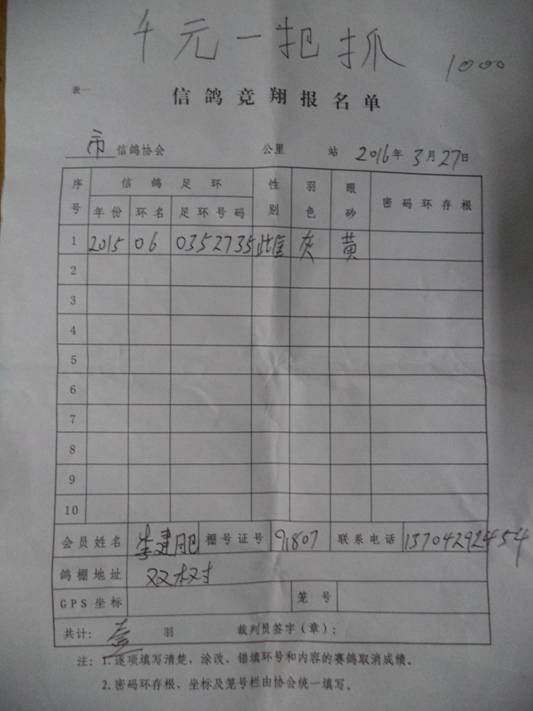 千元一把抓 1000
表一
信鸽竞翔报名单
市 信鸽协会 公里 站 2016年3月27日
序号 信鸽足环 性别 羽色 眼砂 密码环存根
年份 环名 足环号码
1 2015 06 0352735 雌 灰 黄
2
3
4
5
6
7
8
9
10
会员姓名 建 棚号证号 91807 联系电话 13704292454
鸽棚地址 双树
GPS坐标 笼号
共计: 壹 羽 裁判员签字(章):
注: 1.逐项填写清楚、涂改、错填环号和内容的赛鸽取消成绩。
2.密码环存根、坐标及笼号栏由协会统一填写。